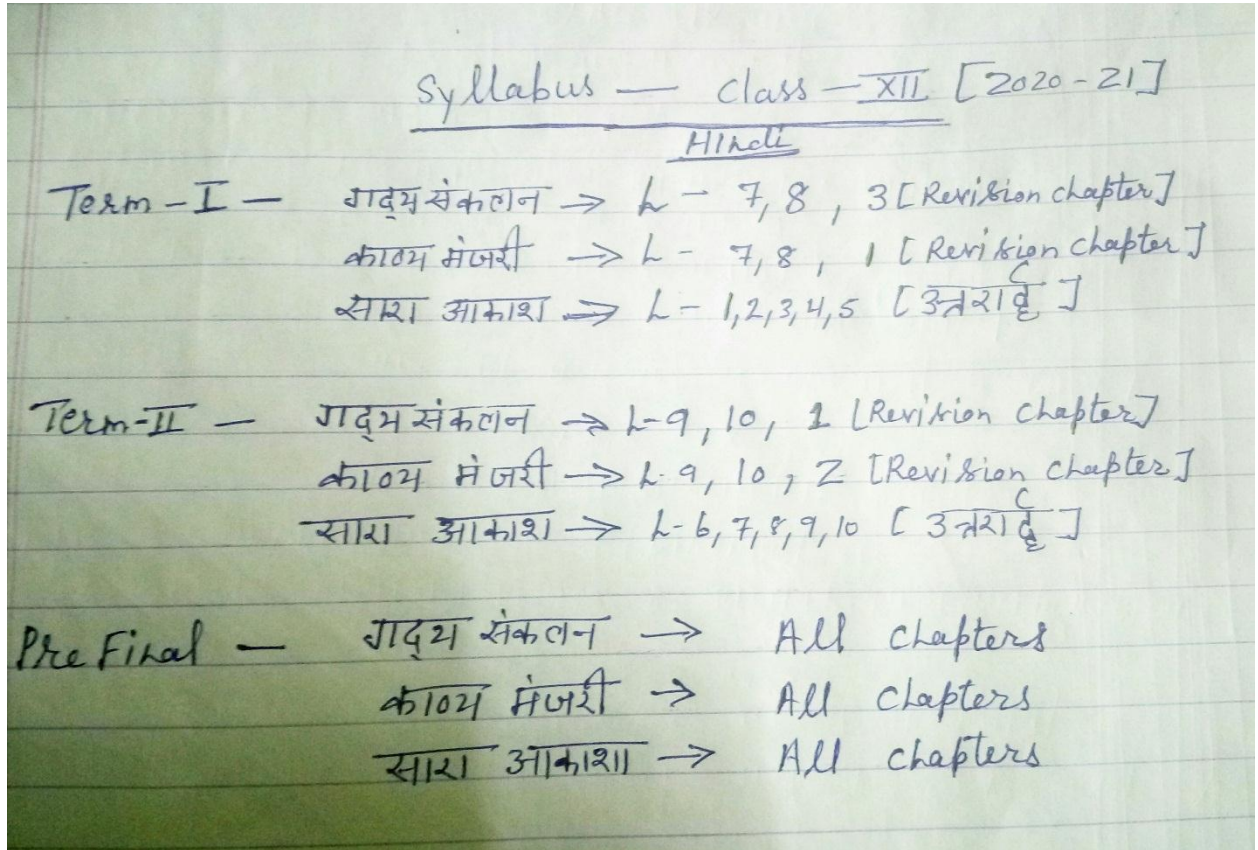 Syllabus — Class — XII [2020-21]
Hindi
Term-I — गद्य संकलन → L - 7, 8, 3 [Revision chapter]
काव्य मंजरी → L - 7,8, 1 [Revision Chapter]
सारा आकाश → L - 1,2,3,4,5 [उत्तरार्द्ध]
Term-II — गद्य संकलन → L-9, 10, 1 [Revision Chapter]
काव्य मंजरी → L-9, 10, 2 [Revision Chapter]
सारा आकाश → L-6,7,8,9,10 [उत्तरार्द्ध]
Pre Final — गद्य संकलन → All Chapters
काव्य मंजरी → All Chapters
सारा आकाश → All Chapters